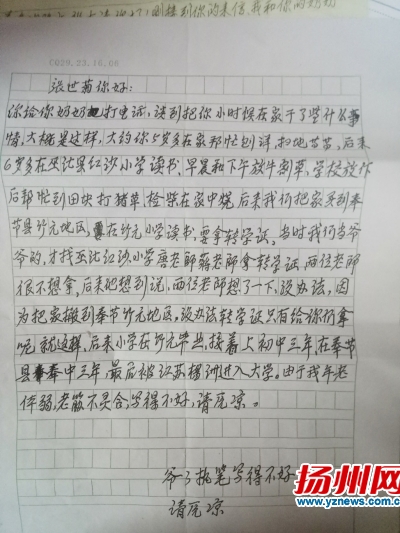 CO29.23.16.06
张世菊你好:
你给你奶奶打电话,谈到把你小时候在家干了些什么事
情,大概是这样,大约你5岁多在家帮忙,扫地等等,后来
6岁多在巫山县红沙小学读书,早晨和下午放牛割草,学校放作
后帮忙到田块打猪草,捡柴在家中烧,后来我们把家买到奉
节县竹元地区,在竹元小学读书,要拿转学证,当时我们当爷
爷的,才找巫山红沙小学唐老师蒋老师拿转学证,两位老师
很不想拿,后来把想到说,两位老师想了一下,没办法,因
为把家搬到奉节竹元地区,没办法转学证只有给你们拿
呢,就这样,后来小学在竹元毕业,接着上初中三年,在奉节
县奉中三年,最后被江苏杨洲进入大学。由于我年老
体弱,老筋不灵合,写得不好,请原凉。
爷了执笔写得不好
请原凉
扬州网
www.yznews.cn